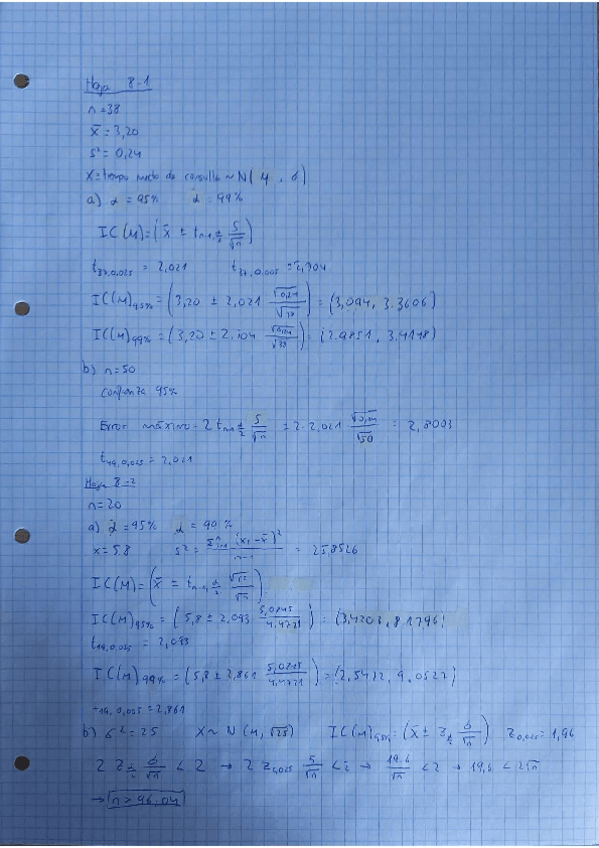 Hoja 8-1
n = 38
x̄ = 3,20
s² = 0,24
X = tiempo medio de consulta ~ N(μ, σ)
a) α = 95% α = 99%
IC(μ) = (x̄ ± t n-1, α/2 S/√n)
t37,0,025 = 2,021 t37,0,005 =
IC(μ)95% = (3,20 ± 2,021 √0,24/√38) = (3,094, 3.3606)
IC(μ)99% = (3,20 ± 2.704 √0,24/√38) = (2.9851, 3.4148)
b) n = 50
Confianza 95%
Error máximo = 2 t n-1, α/2 S/√n = 2 · 2,021 · √0,24/√50 = 2,8003
t49,0,025 = 2,021
Hoja 8-2
n = 20
a) α = 95% α = 90%
x = 5,8 s² = Σ (xi - x̄)²/n-1 = 25,8526
IC(μ) = (x̄ ± t n-1, α/2 /√n)
IC(μ)95% = (5,8 ± 2,093 5,0845/4,4721) = (3,4203, 8,1796)
t19,0,025 = 2,093
IC(μ)99% = (5,8 ± 2,861 5,0845/4,4721) = (2,5472, 9,0527)
t19, 0,005 = 2,861
b) σ² = 25 X ~ N(μ, √25) IC(μ)95% = (x̄ ± z α/2 σ/√n) z0,025 = 1,96
2 z α/2 σ/√n < 2 → 2 z0,025 5/√n < 2 → 19,6/√n < 2 → 19,6 < 2√n
→ n > 96,04